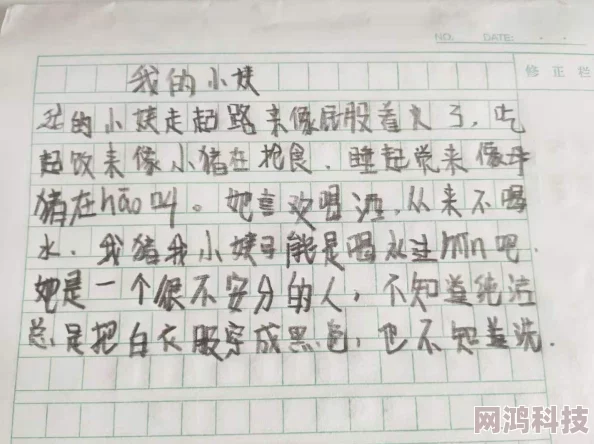 NO. DATE: . .
修正栏
我的小姨
我的小姨走起路来像屁股着火了，吃
起饭来像小猪在抢食．睡起觉来像母
猪在hāo叫。她喜欢喝酒，从来不喝
水．我猪我小姨可能是喝水过mǐn吧．
她是一个很不安分的人，不知道纯洁
总是把白衣服穿成黑色，也不知道洗．
网鸿科技